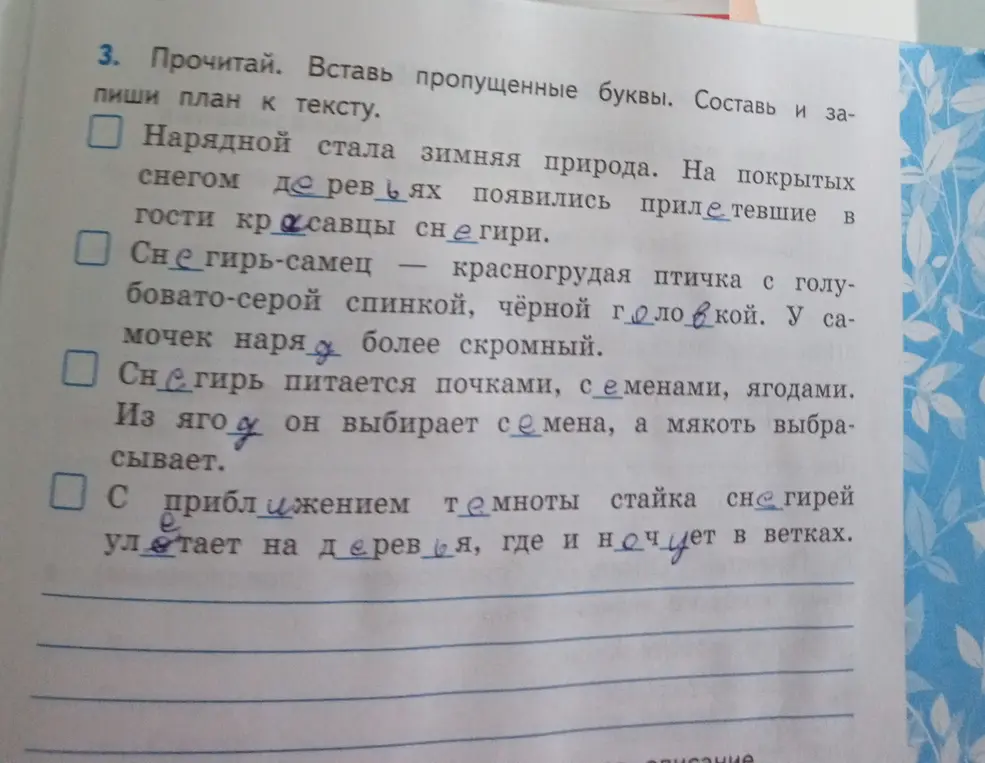 3. Прочитай. Вставь пропущенные буквы. Составь и за-
пиши план к тексту.
Нарядной стала зимняя природа. На покрытых
снегом деревьях появились прилетевшие в
гости красавцы снегири.
Снегирь-самец — красногрудая птичка с голу-
бовато-серой спинкой, чёрной головкой. У са-
мочек наряд более скромный.
Снегирь питается почками, семенами, ягодами.
Из ягод он выбирает семена, а мякоть выбра-
сывает.
С приближением темноты стайка снегирей
улетает на деревья, где и ночует в ветках.
описание